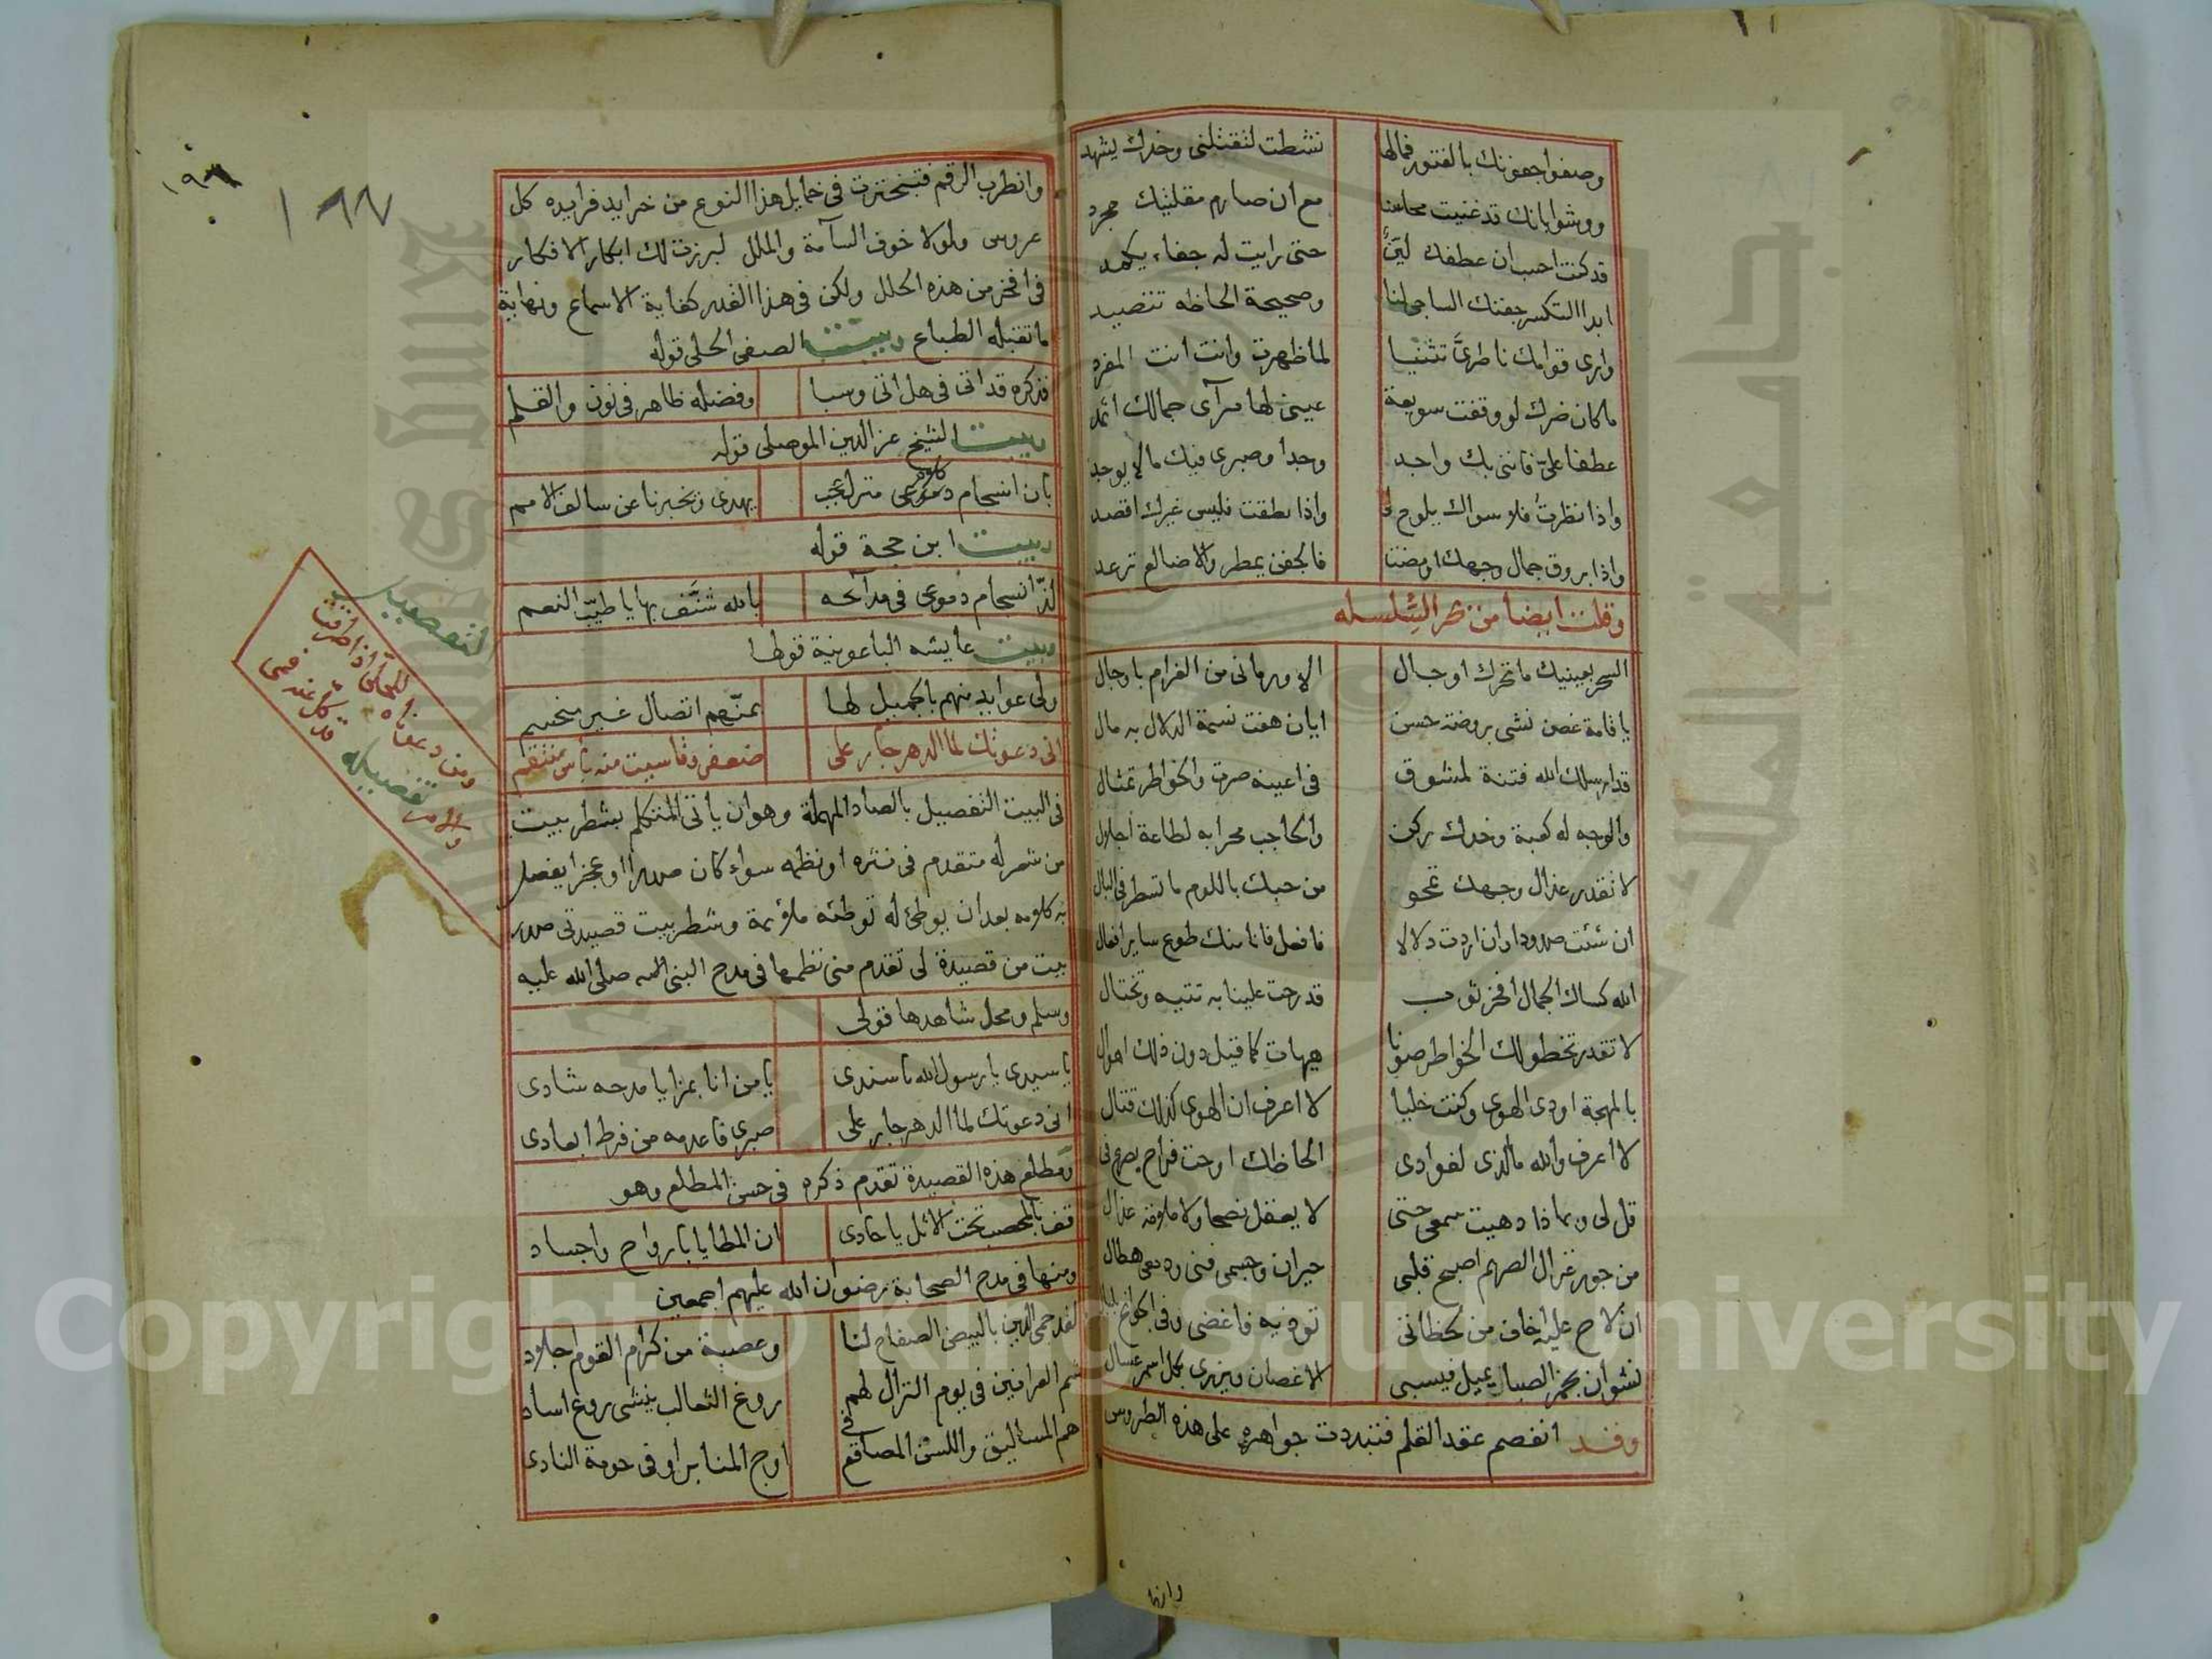 وصفوا جفونك بالفتور فمالها نشطت لتقتلني وخدك يشهد
ووشوا بانك قد غنيت محاسنا مع ان صارم مقلتيك مجرد
قد كنت احسب ان عطفك لين حتى رايت له جفاء يكمد
ابدا التكسر جفنك الساجي لنا وصحيحة الحاظه تتصيد
وارى قوامك ناظري تثنيا لما ظهرت وانت انت المفرد
ما كان ضرك لو وقفت سويعة عيني لها مرآى جمالك اثمد
عطفا علي فانني بك واجد وجدا وصبري فيك مالا يوجد
واذا نظرت فلا سواك يلوح لي واذا نطقت فليس غيرك اقصد
واذا بروق جمال وجهك اومضت فالجفن يمطر والاضالع ترعد
وقلت ايضا من بحر السلسله
السحر بعينيك ما تحرك اوجال الا ورماني من الغرام باوجال
يا قامة غصن نشى بروضة حسن ايان هفت نسمة الدلال به مال
قد ارسلك الله فتنة لمشوق في اعينه صرت والخواطر تمثال
والوجه له كعبة وخدك ركن والحاجب محرابه لطاعة اجلال
لا تقدر عذال وجهك تمحو من حبك باللوم ما تسطر في البال
ان شئت صدودا وان اردت دلالا فافعل فانا منك طوع ساير افعال
الله كساك الجمال افخر ثوب قد رحت علينا به تتيه وتختال
لا تقدر تخطو لك الخواطر صونا هيهات كما قيل دون ذلك اهوال
بالمهجة اودى الهوى وكنت خليا لا اعرف ان الهوى كذلك قتال
لا اعرف والله ما الذي لفوادي الحاظك اوحت فراح يصرع في
قل لي وبماذا دهيت سمعي حتى لا يعقل نصحا ولا ملامة عذال
من جور غزال الصريم اصبح قلبي حيران وجسمي فني ودمعي هطال
ان لاح عليه اخاف من لحظاتي توذيه فاغضي وفي الجوانح
نشوان بخمر الصبا يميل فيسبي الاغصان ويزري بكل اسمر عسال
وقد انفصم عقد القلم فتبددت جواهره على هذه الطروس
وانطرب
١٩٦
١٨٧
وانطرب الرقم فتبخترت في خمايل هذا النوع من خرايد فرايده كل
عروس ولولا خوف السآمة والملل لبرزت لك ابكار الافكار
في افخر من هذه الحلل ولكن في هذا القدر كفاية الاسماع ونهاية
ما تقبله الطباع وبيت الصفي الحلي قوله
فذكره قد اتى في هل اتى وسبا وفضله ظاهر في نون والقلم
وبيت الشيخ عز الدين الموصلي قوله
بان انسجام كلام منزل عجب يهدي ويخبرنا عن سالف الامم
وبيت ابن حجة قوله
لذ انسجام دموعي في مدائحه بالله شنف بها يا طيب النغم
وبيت عايشه الباعونية قولها
ولي عوايد منهم بالجميل لها بمنهم اتصال غير منحسم
اني دعوتك لما الدهر جار على ضعفي وقاسيت منه باس منتقم
في البيت التفصيل بالصاد المهملة وهو ان ياتي المتكلم بشطر بيت
من شعر له متقدم في نثره او نظمه سواء كان صدرا او عجزا يفصل
به كلامه بعد ان يوطئ له توطئه ملائمة وشطر بيت قصيدتي صدر
بيت من قصيدة لي تقدم مني نظمها في مدح النبي صلى الله عليه
وسلم ومحل شاهدها قولي
يا سيدي يا رسول الله يا سندي يا من انا بمزايا مدحه شادي
اني دعوتك لما الدهر جار على صبري فاعدمه من فرط ابعادي
ومطلع هذه القصيدة تقدم ذكره في حسن المطلع وهو
قف بالمحصب تحت الاثل يا حادي ان المطايا بارواح واجساد
ومنها في مدح الصحابة رضوان الله عليهم اجمعين
لقد حمى الدين بالبيض الصفاح لنا وعصبة من كرام القوم اجلاد
شم العرانين في يوم النزال لهم روغ الثعالب ينشى روع اساد
هم المساليق واللسن المصاقع في اوج المنابر او في حومة النادي
التفصيل